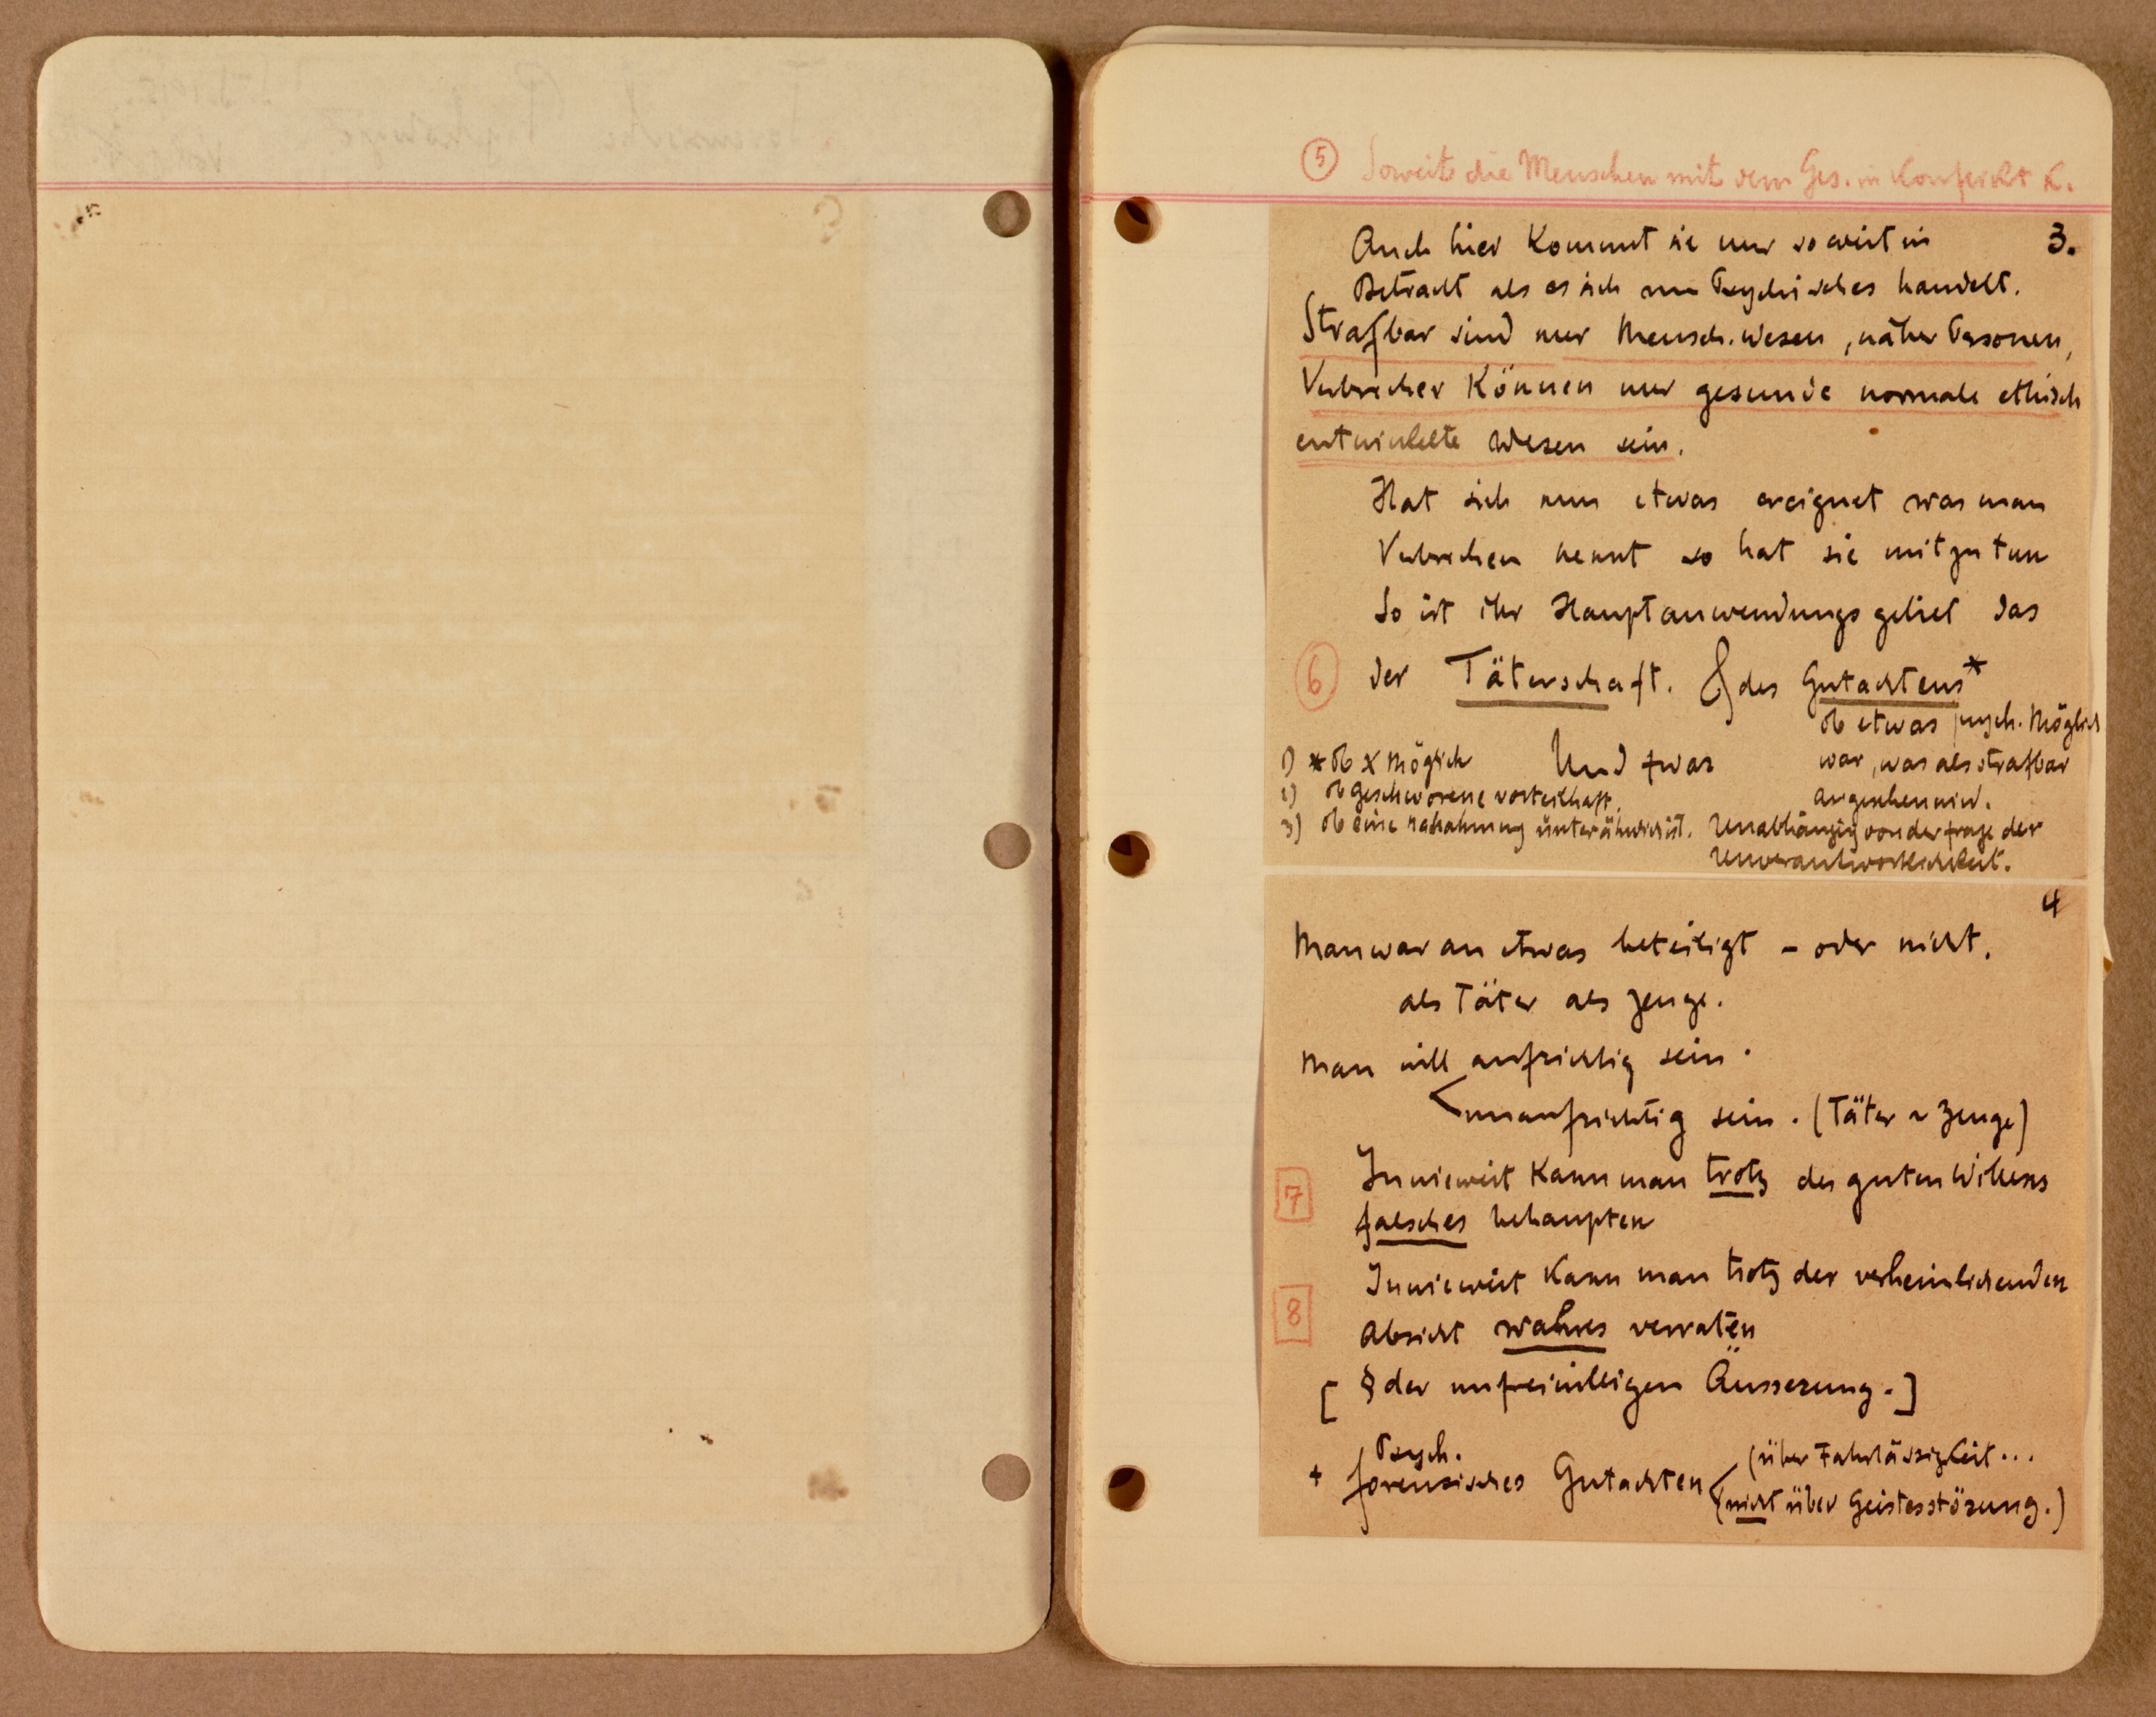 5 Soweit die Menschen mit dem Ges. in Konflikt k.
3.
Auch hier kommt sie nur soweit in
Betracht als es sich um Psychisches handelt.
Strafbar sind nur Mensch. wesen, näher Personen,
Verbrecher können nur gesunde normale ethisch
entwickelte Wesen sein.
Hat sich nun etwas ereignet was man
Verbrechen nennt so hat sie mitzutun
So ist ihr Hauptanwendungsgebiet das
6 der Täterschaft. & des Gutachtens*
ob etwas psych. möglich
war, was als strafbar
angesehen wird.
Unabhängig von der Frage der
Unverantwortlichkeit.
Und zwar
1) * ob x möglich
2) ob Geschworene vorteilhaft.
3) ob eine
4
Man war an etwas beteiligt – oder nicht.
als Täter als Zeuge.
Man will aufrichtig sein.
unaufrichtig sein. (Täter ~ Zeuge)
7 Inwieweit kann man trotz des guten Willens
falsches behaupten
8 Inwieweit kann man trotz der verheimlichenden
Absicht wahres verraten
[ § der unfreiwilligen Äusserung. ]
Psych.
+ forensisches Gutachten (über Fahrlässigkeit...
(nicht über Geistesstörung.)